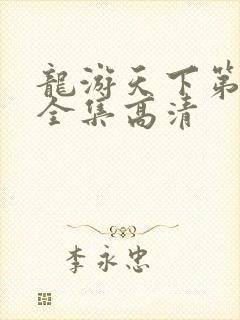 龍游天下第
全集高清
李永忠